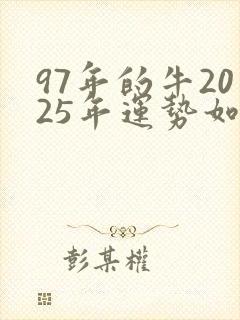 97年的牛20
25年運勢如
彭某權